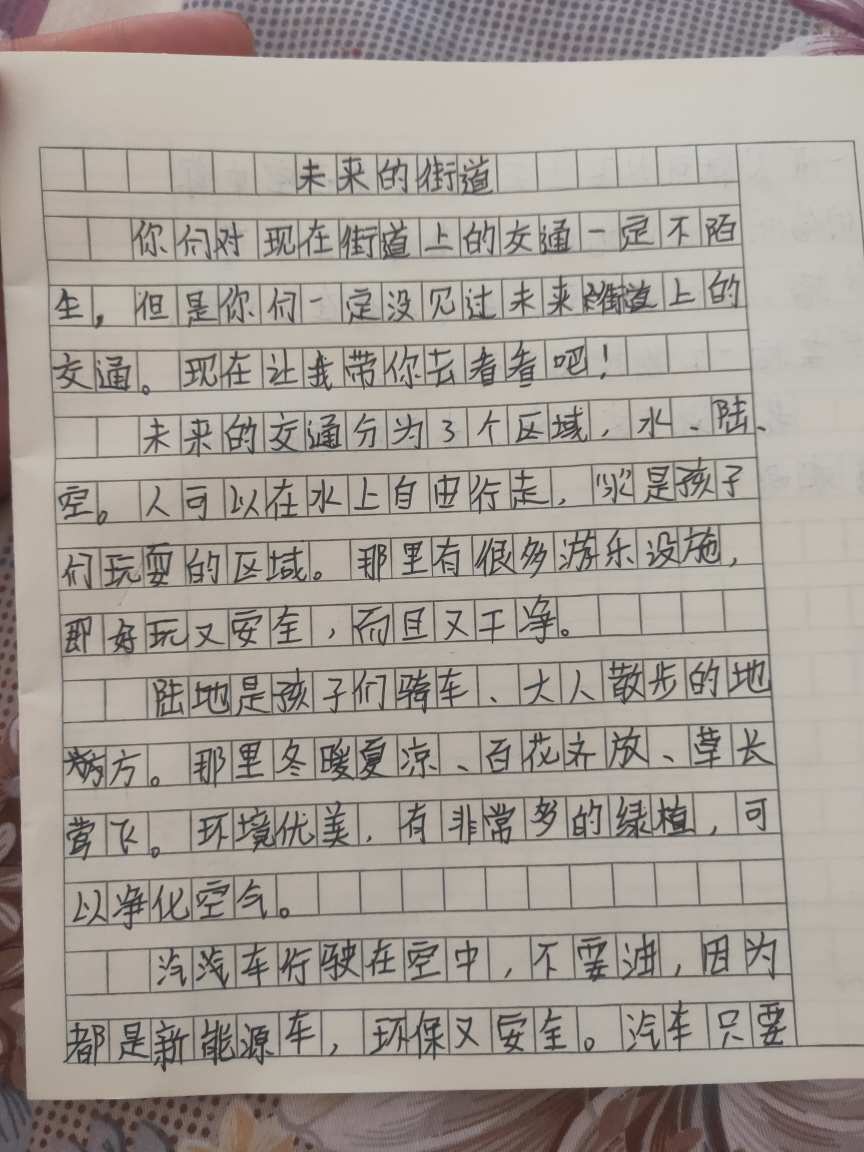 未来的街道
你们对现在街道上的交通一定不陌
生，但是你们一定没见过未来街道上的
交通。现在让我带你去看看吧！
未来的交通分为3个区域，水、陆、
空。人可以在水上自由行走，“水”是孩子
们玩耍的区域。那里有很多游乐设施，
即好玩又安全，而且又干净。
陆地是孩子们骑车、大人散步的地
方。那里冬暖夏凉、百花齐放、草长
莺飞。环境优美，有非常多的绿植，可
以净化空气。
汽汽车行驶在空中，不要油，因为
都是新能源车，环保又安全。汽车只要